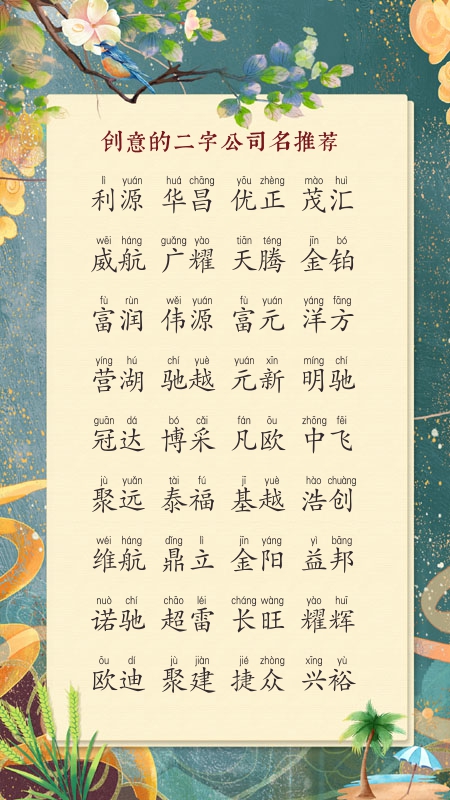 创意的二字公司名推荐
lì yuán huá chāng yōu zhèng mào huì
利源 华昌 优正 茂汇
wēi háng guǎng yào tiān téng jīn bó
威航 广耀 天腾 金铂
fù rùn wěi yuán fù yuán yáng fāng
富润 伟源 富元 洋方
yíng hú chí yuè yuán xīn míng chí
营湖 驰越 元新 明驰
guān dá bó cǎi fán ōu zhōng fēi
冠达 博采 凡欧 中飞
jù yuǎn tài fú jī yuè hào chuàng
聚远 泰福 基越 浩创
wéi háng dǐng lì jīn yáng yì bāng
维航 鼎立 金阳 益邦
nuò chí chāo léi cháng wàng yào huī
诺驰 超雷 长旺 耀辉
ōu dí jù jiàn jié zhòng xīng yù
欧迪 聚建 捷众 兴裕